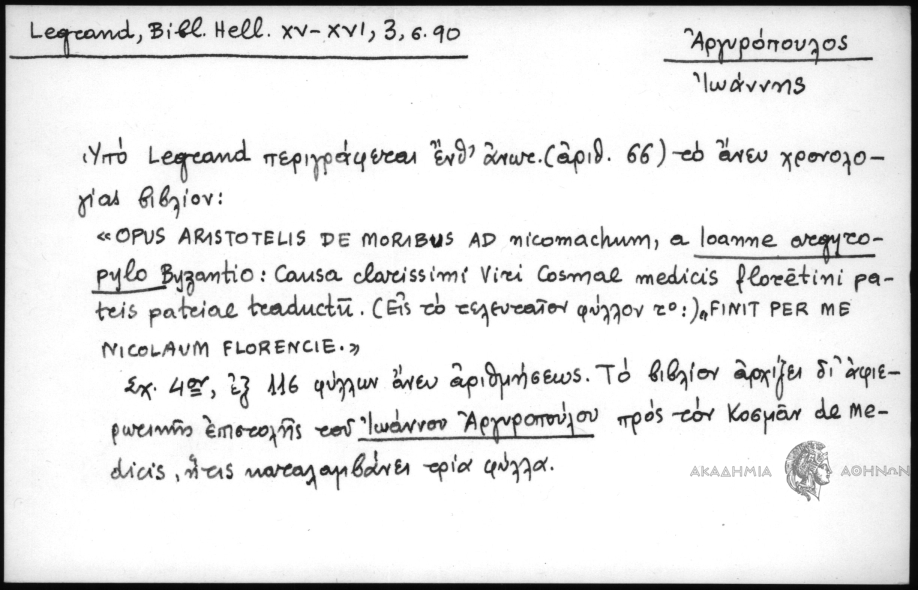 Legrand, Bibl. Hell. XV-XVI, 3, σ. 90
Ἀργυρόπουλος
Ἰωάννης
Ὑπό Legrand περιγράφεται ἔνθ' ἀνωτ. (ἀριθ. 66) τό ἄνευ χρονολο-
γίας βιβλίον:
«OPUS ARISTOTELIS DE MORIBUS AD nicomachum, a Ioanne argyro-
pylo Byzantio: Causa clarissimi Viri Cosmae medicis florētini pa-
tris patriae traductū. (Εἰς τό τελευταῖον φύλλον το:) „FINIT PER ME
NICOLAUM FLORENCIE.»
Σχ. 4ον, ἐξ 116 φύλλων ἄνευ ἀριθμήσεως. Τό βιβλίον ἀρχίζει δι' ἀφιε-
ρωτικῆς ἐπιστολῆς τοῦ Ἰωάννου Ἀργυροπούλου πρός τόν Κοσμᾶν de Me-
dicis, ἥτις καταλαμβάνει τρία φύλλα.
ΑΚΑΔΗΜΙΑ ΑΘΗΝΩΝ